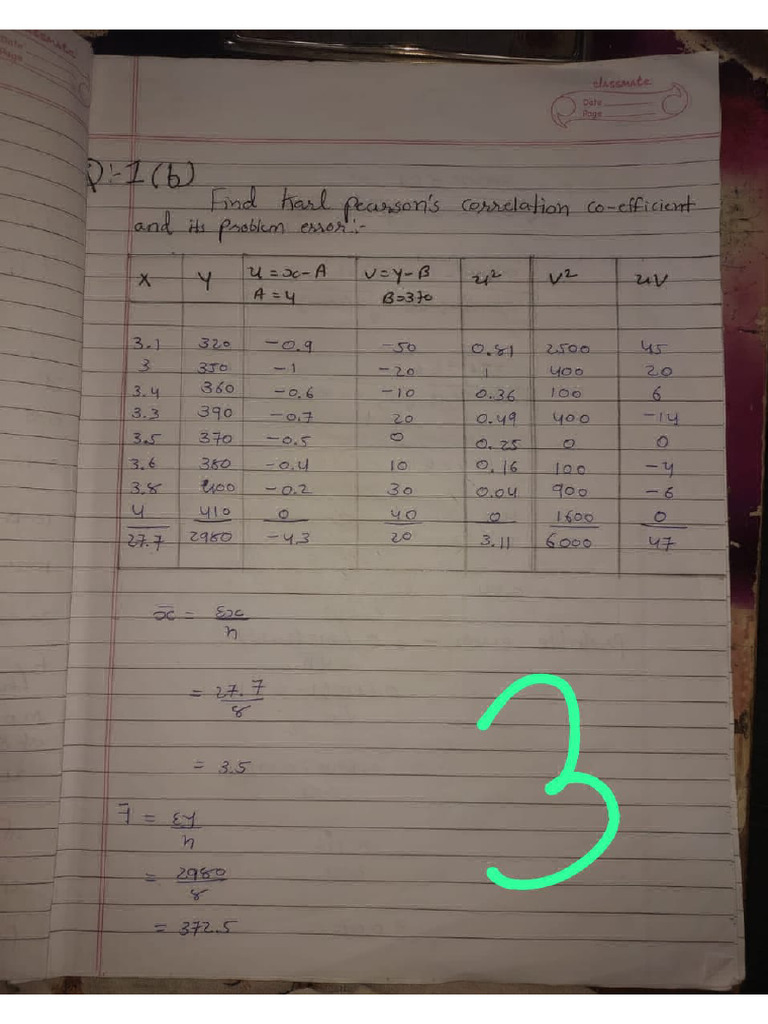 classmate
Date
Page
Q:-1(b)
Find Karl pearson's correlation co-efficient
and its problem error:-
X Y u=x-A v=y-B u² v² uv
A=4 B=370
3.1 320 -0.9 -50 0.81 2500 45
3 350 -1 -20 1 400 20
3.4 360 -0.6 -10 0.36 100 6
3.3 390 -0.7 20 0.49 400 -14
3.5 370 -0.5 0 0.25 0 0
3.6 380 -0.4 10 0.16 100 -4
3.8 400 -0.2 30 0.04 900 -6
4 410 0 40 0 1600 0
27.7 2980 -4.3 20 3.11 6000 47
x̄ = Σx
n
= 27.7
8
= 3.5
ȳ = Σy
n
= 2980
8
= 372.5
3